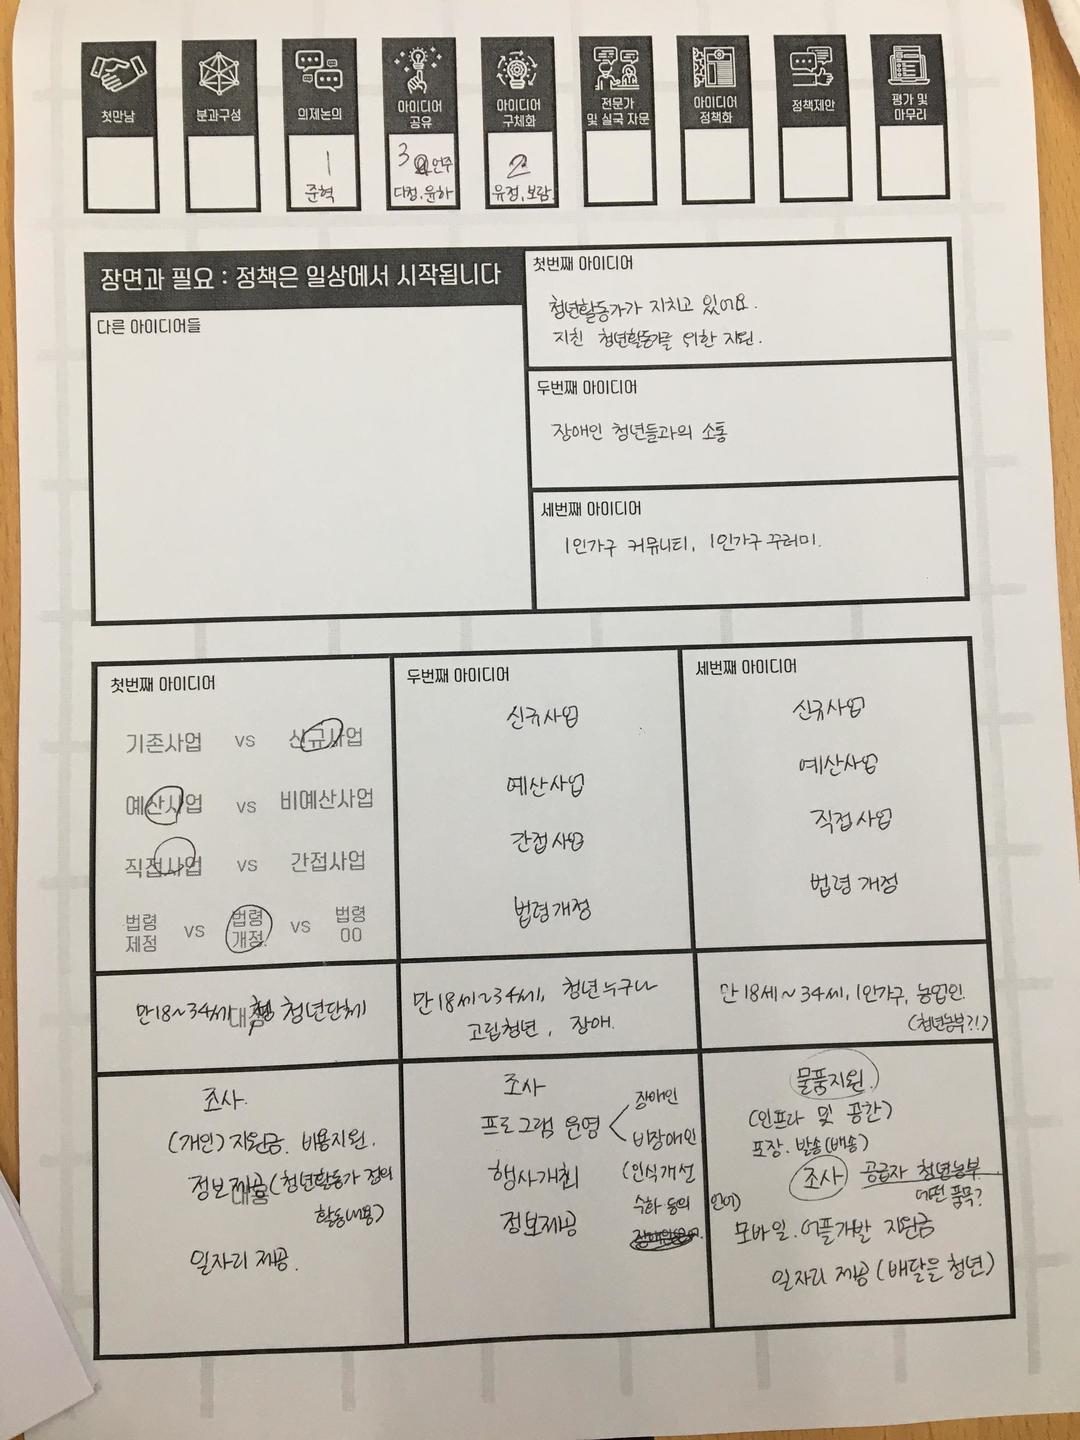 첫만남
분과구성
의제논의
아이디어
공유
아이디어
구체화
전문가
및 실국 자문
아이디어
정책화
정책제안
평가 및
마무리
1
준혁
3 연주
다정, 윤하
2
유정, 보람
장면과 필요 : 정책은 일상에서 시작됩니다
다른 아이디어들
첫번째 아이디어
청년활동가가 지치고 있어요.
지친 청년활동가를 위한 지원.
두번째 아이디어
장애인 청년들과의 소통
세번째 아이디어
1인가구 커뮤니티, 1인가구 꾸러미.
첫번째 아이디어
기존사업 vs 신규사업
예산사업 vs 비예산사업
직접사업 vs 간접사업
법령 제정 vs 법령 개정 vs 법령 00
만18~34세 대상 청년단체
조사.
(개인) 지원금. 비용지원.
정보제공 (청년활동가 정의
내용
활동내용)
일자리 제공.
두번째 아이디어
신규사업
예산사업
간접사업
법령개정
만18세~34세, 청년누구나
고립청년, 장애.
조사
프로그램 운영 < 장애인
비장애인
행사개최 (인식개선
수화 등의 언어)
정보제공
세번째 아이디어
신규사업
예산사업
직접사업
법령 개정
만18세~34세, 1인가구, 농업인.
(청년농부?!)
물품지원.
(인프라 및 공간)
포장. 발송(배송)
조사 공급자 청년농부.
어떤 품목?
모바일. 어플개발 지원금
일자리 제공 (배달을 청년)